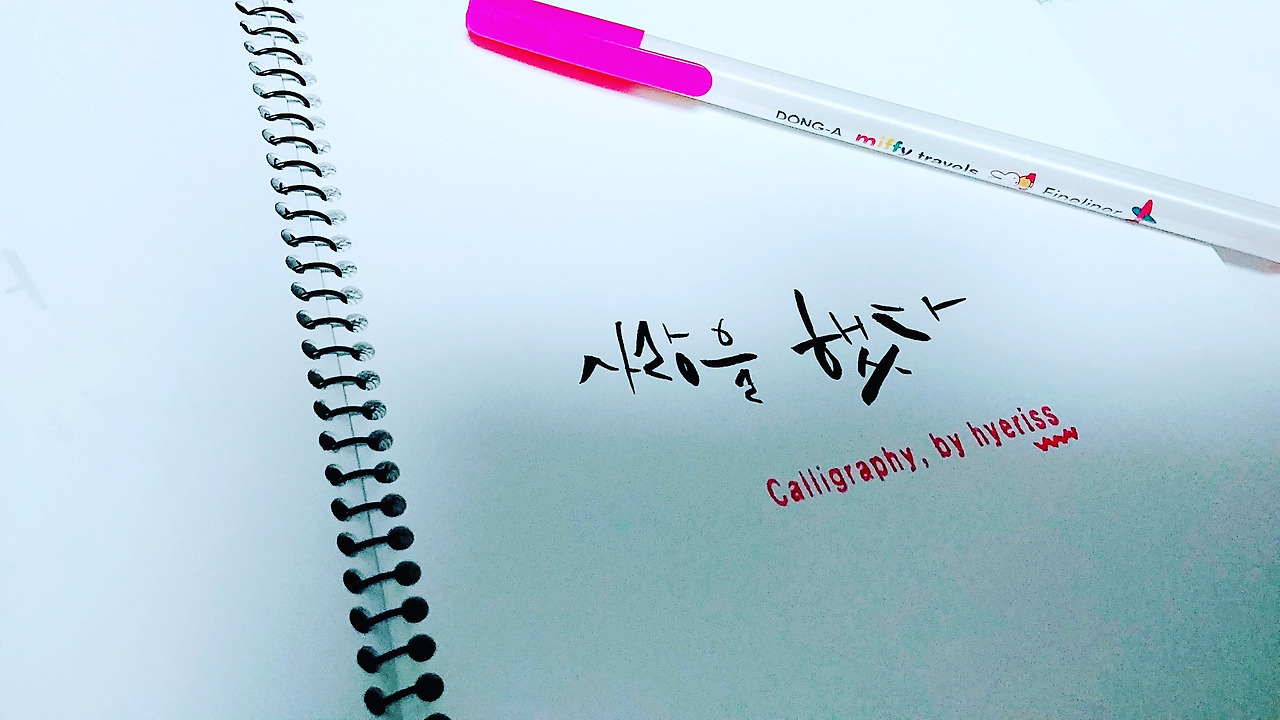 DONG-A miffy travels Fineliner
사랑을 했다
Calligraphy, by hyeriss